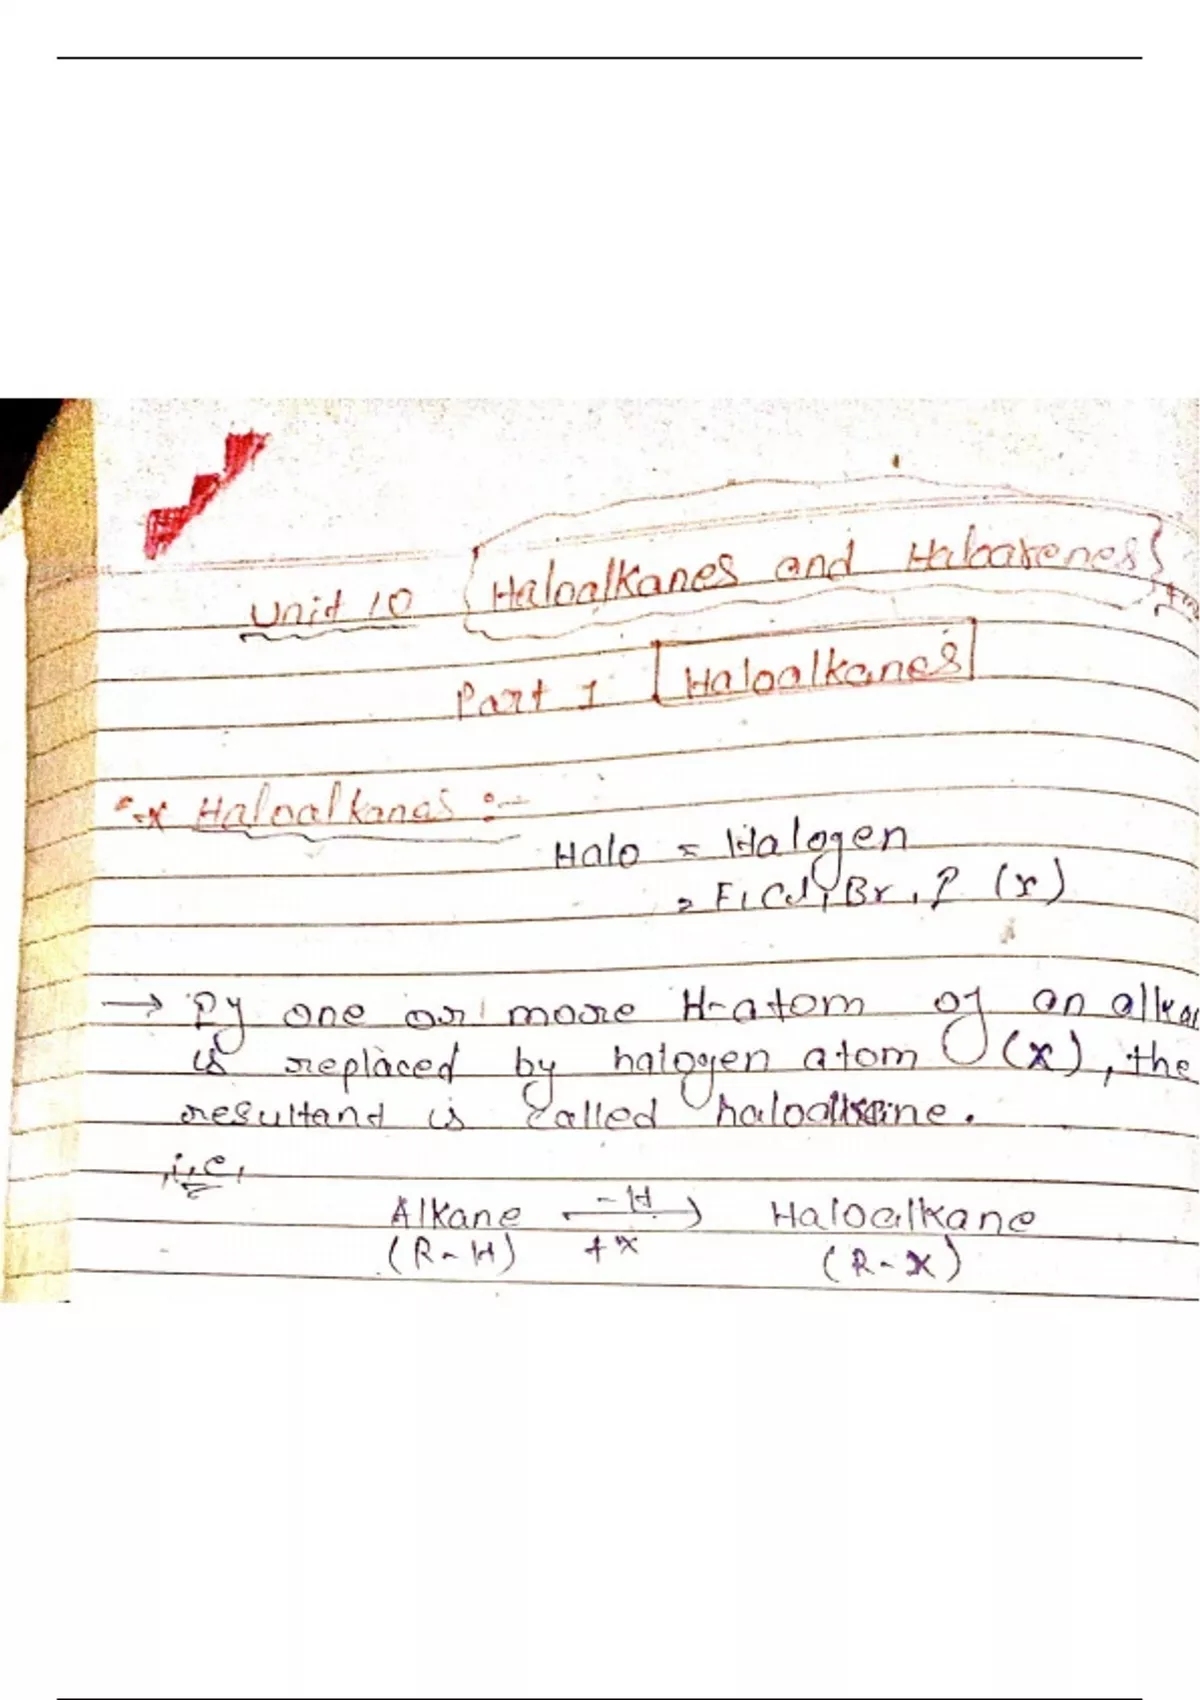 Unit 10 Haloalkanes and Haloarenes
Part 1 Haloalkanes
* Haloalkanes :-
Halo = Halogen
= F, Cl, Br, I (x)
→ If one or more H-atom of an alka
is replaced by halogen atom (x), the
resultant is called haloalkane.
i.e,
Alkane -H Haloalkane
(R-H) +x (R-x)